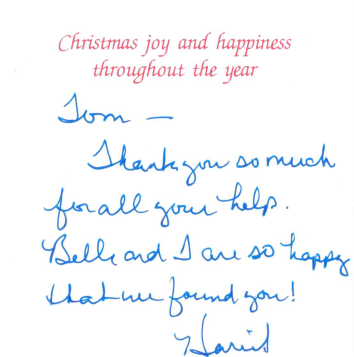 Christmas joy and happiness
throughout the year
Tom —
Thank you so much
for all your help.
Belle and I are so happy
that we found you!